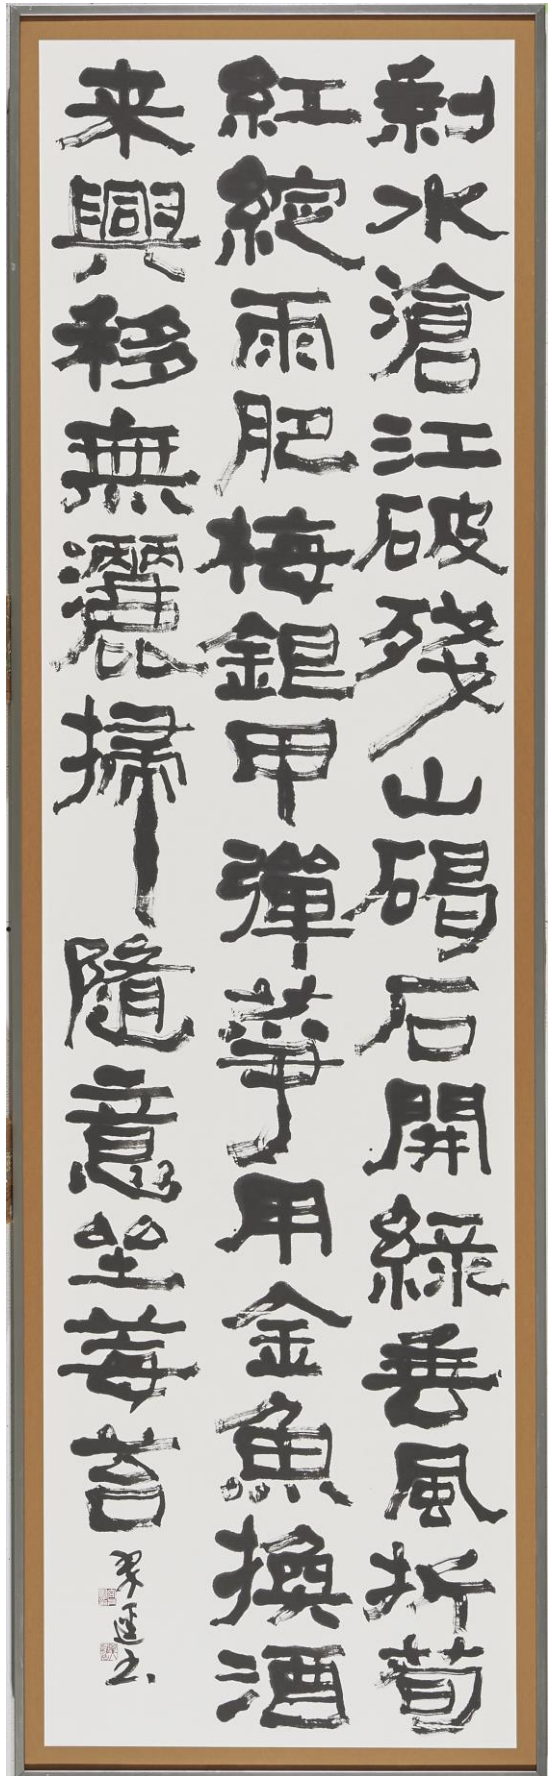 剩水滄江破殘山碣石開綠垂風折筍
紅綻雨肥梅銀甲彈箏用金魚換酒
来興移無灑掃隨意坐莓苔